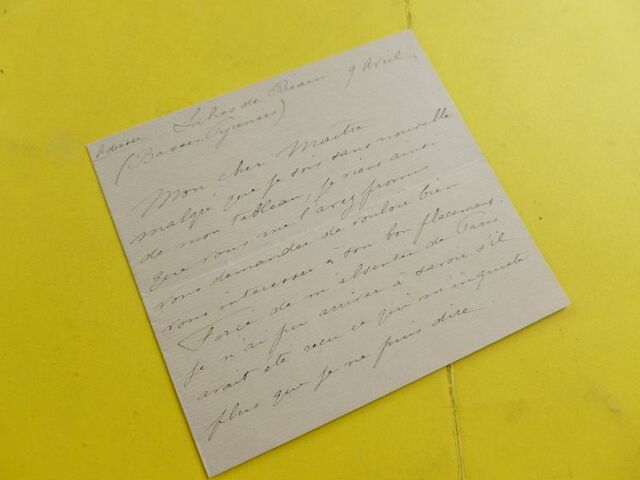 Adresse. Salies de Béarn 9 Avril,
(Basses-Pyrenées)
Mon cher Maître
malgré que je sois sans nouvelle
de mon tableau, je viens ainsi
que vous me l'avez promis
vous demander de vouloir bien
vous interesser à son bon placement.
Forcé de m'absenter de Paris
je n'ai pu arriver à savoir s'il
avait été recu ce qui m'inquiète
plus que je ne puis dire.